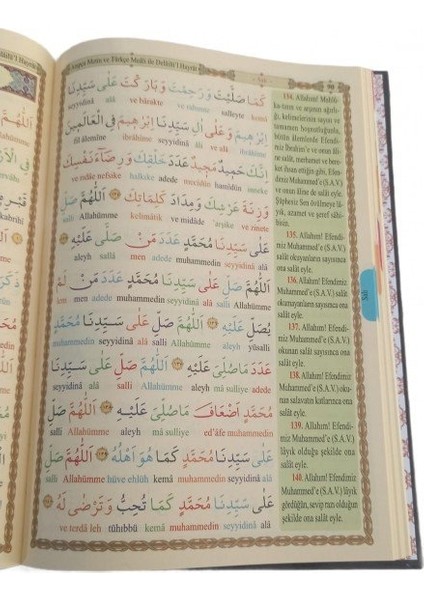 Arapça Metin ve Türkçe Meâli ile Delâili'l Hayrât
90
كَمَا صَلَّيْتَ وَرَحِمْتَ وَبَارَكْتَ عَلٰى سَيِّدِنَا
seyyidinâ alâ ve bârakte ve rahımte salleyte kemâ
اِبْرٰهِيمَ وَعَلٰى اٰلِ سَيِّدِنَا اِبْرٰهِيمَ فِى الْعَالَمِينَ
fil âlemîne ibrâhîme seyyidinâ âli ve alâ ibrâhîme
اِنَّكَ حَمِيدٌ مَجِيدٌ عَدَدَ خَلْقِكَ وَرِضَاۤءَ نَفْسِكَ
ve rıdâe nefsike halkıke adede mecîdün hamîdün inneke
وَزِنَةَ عَرْشِكَ وَمِدَادَ كَلِمَاتِكَ اَللّٰهُمَّ صَلِّ
salli Allahümme kelimâtik ve midâde arşike ve zinete
عَلٰى سَيِّدِنَا مُحَمَّدٍ عَدَدَ مَنْ صَلّٰى عَلَيْهِ
aleyh sallâ men adede muhammedin seyyidinâ alâ
اَللّٰهُمَّ صَلِّ عَلٰى سَيِّدِنَا مُحَمَّدٍ عَدَدَ مَنْ لَمْ
lem men adede muhammedin seyyidinâ alâ salli Allahümme
يُصَلِّ عَلَيْهِ اَللّٰهُمَّ صَلِّ عَلٰى سَيِّدِنَا مُحَمَّدٍ
muhammedin seyyidinâ alâ salli Allahümme aleyh yüsalli
عَدَدَ مَاصُلِّىَ عَلَيْهِ اَللّٰهُمَّ صَلِّ عَلٰى سَيِّدِنَا
seyyidinâ alâ salli Allahümme aleyh mâ sulliye adede
مُحَمَّدٍ اَضْعَافَ مَاصُلِّىَ عَلَيْهِ اَللّٰهُمَّ صَلِّ
salli Allahümme aleyh mâ sulliye ed'âfe muhammedin
عَلٰى سَيِّدِنَا مُحَمَّدٍ كَمَا هُوَ اَهْلُهُ اَللّٰهُمَّ صَلِّ
salli Allahümme hüve ehlüh kemâ muhammedin seyyidinâ alâ
عَلٰى سَيِّدِنَا مُحَمَّدٍ كَمَا تُحِبُّ وَتَرْضٰى لَهُ
ve terdâ leh tühıbbü kemâ muhammedin seyyidinâ alâ
134. Allahım! Mahlû-
katının ve arşının ağırlı-
ğı, kelimelerinin sayısı ve
tümünün hoşnutluğunda,
bütün âlemlerde Efendi-
miz İbrahim'e ve onun âi-
line salât, merhamet ve bere-
ket ihsan ettiğin gibi, Efen-
dimiz Muhammed'e (S.A.V.)
ve onun âline de salât eyle.
Şüphesiz Sen övülmeye lâ-
yık, azamet ve şeref sahibi-
sin.
135. Allahım! Efendimiz
Muhammed'e (S.A.V.) salât
okuyanların sayısınca ona
salât eyle.
136. Allahım! Efendimiz
Muhammed'e (S.A.V.) salât
okumayanların sayısınca ona
salât eyle.
137. Allahım! Efendimiz
Muhammed'e (S.A.V.)
okunan salât sayısınca ona
salât eyle.
138. Allahım! Efendimiz
Muhammed'e (S.A.V.) oku-
nan salavatın katlarınca ona
salât eyle.
139. Allahım! Efendi-
miz Muhammed'e (S.A.V.)
lâyık olduğu şekilde ona
salât eyle.
140. Allahım! Efendimiz
Muhammed'e (S.A.V.) lâyık
gördüğün, sevip razı olduğun
şekilde ona salât eyle.
Salı